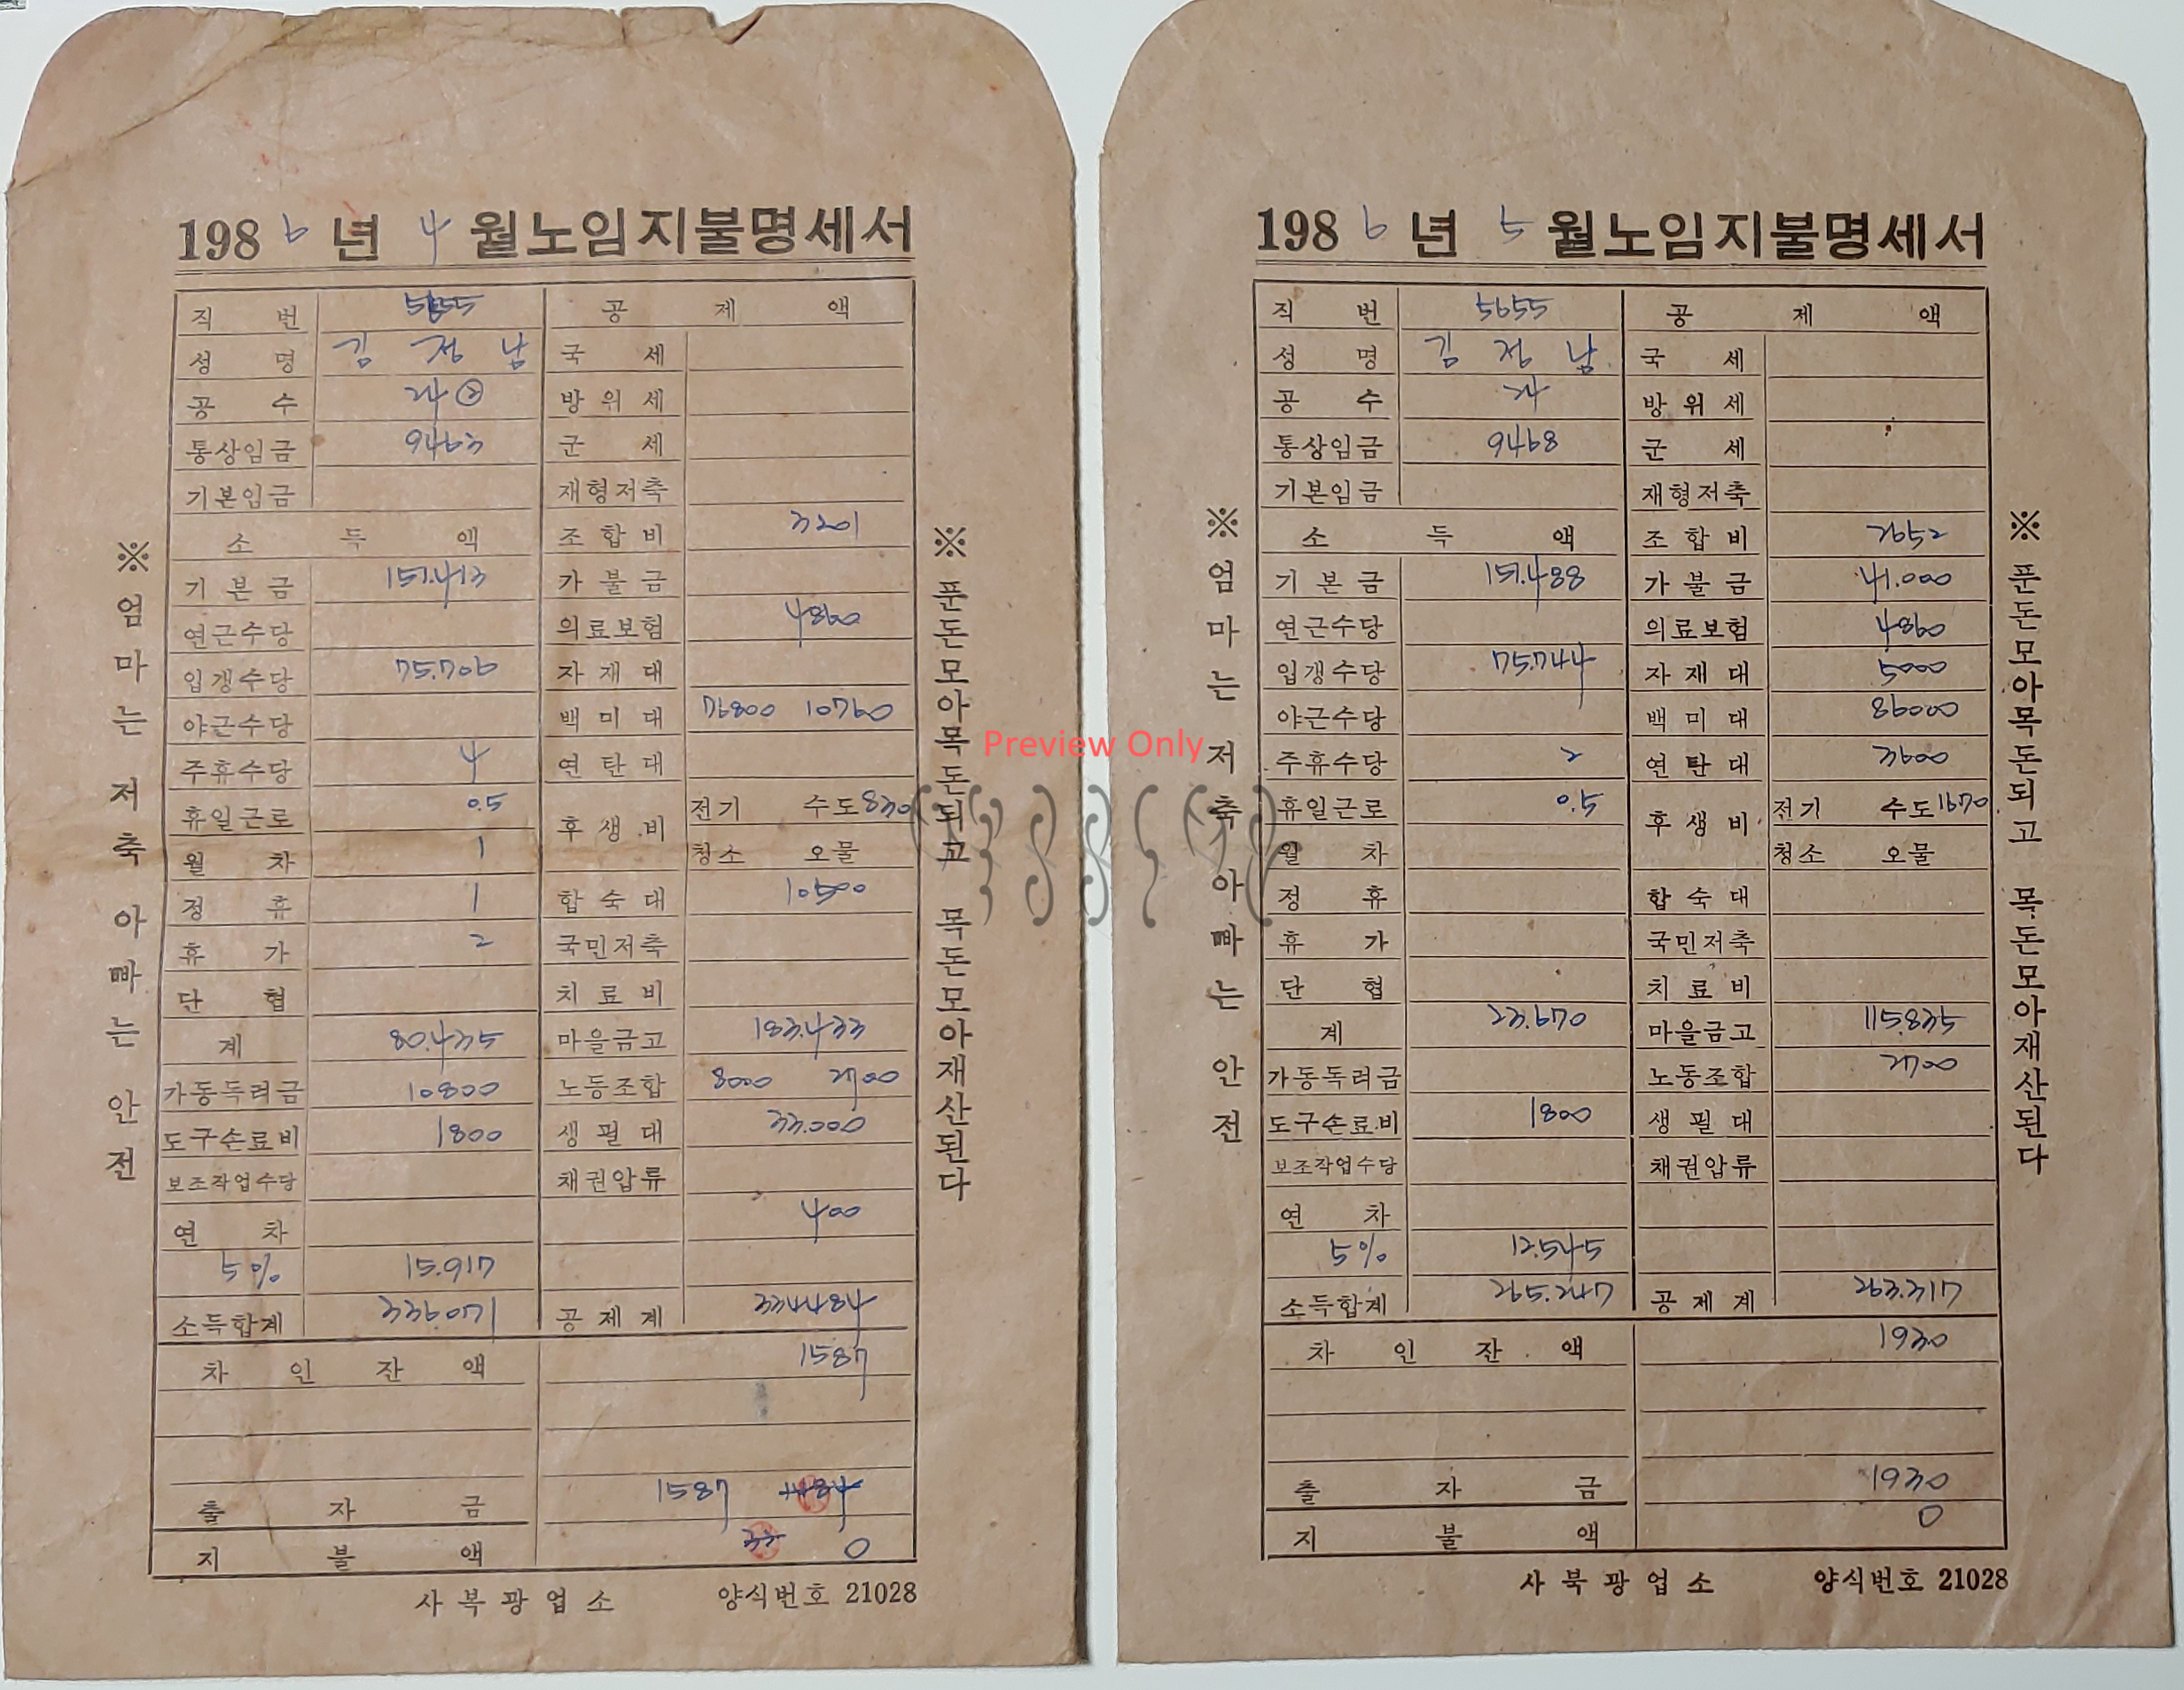 198 6 년 4 월노임지불명세서
직 번 5655 공 제 액
성 명 김 정 남 국 세
공 수 24 ② 방 위 세
통상임금 9463 군 세
기본임금 재형저축
소 득 액 조 합 비 3201
기 본 금 151.413 가 불 금
연근수당 의료보험 4860
입갱수당 75.706 자 재 대
야근수당 백 미 대 76800 10760
주휴수당 4 연 탄 대
휴일근로 0.5 후 생 비 전기 수도 830
월 차 1 청소 오물
정 휴 1 합 숙 대 10500
휴 가 2 국민저축
단 협 치 료 비
계 80.435 마을금고 183.433
가동독려금 10800 노동조합 8000 2700
도구손료비 1800 생 필 대 33.000
보조작업수당 채권압류
연 차 400
5% 15.917
소득합계 336.071 공 제 계 334484
차 인 잔 액 1587
출 자 금 1587
지 불 액 0
사 북 광 업 소 양식번호 21028
※ 엄마는 저축 아빠는 안전
※ 푼돈모아목돈되고 목돈모아재산된다
Preview Only
198 6 년 5 월노임지불명세서
직 번 5655 공 제 액
성 명 김 정 남 국 세
공 수 24 방 위 세
통상임금 9468 군 세
기본임금 재형저축
소 득 액 조 합 비 2652
기 본 금 151.488 가 불 금 41.000
연근수당 의료보험 4860
입갱수당 75.744 자 재 대 5000
야근수당 백 미 대 86000
주휴수당 2 연 탄 대 3600
휴일근로 0.5 후 생 비 전기 수도 1670
월 차 청소 오물
정 휴 합 숙 대
휴 가 국민저축
단 협 치 료 비
계 23.670 마을금고 115.835
가동독려금 노동조합 2700
도구손료비 1800 생 필 대
보조작업수당 채권압류
연 차
5% 12.545
소득합계 265.247 공 제 계 263.317
차 인 잔 액 1930
출 자 금 1930
지 불 액 0
사 북 광 업 소 양식번호 21028
※ 엄마는 저축 아빠는 안전
※ 푼돈모아목돈되고 목돈모아재산된다